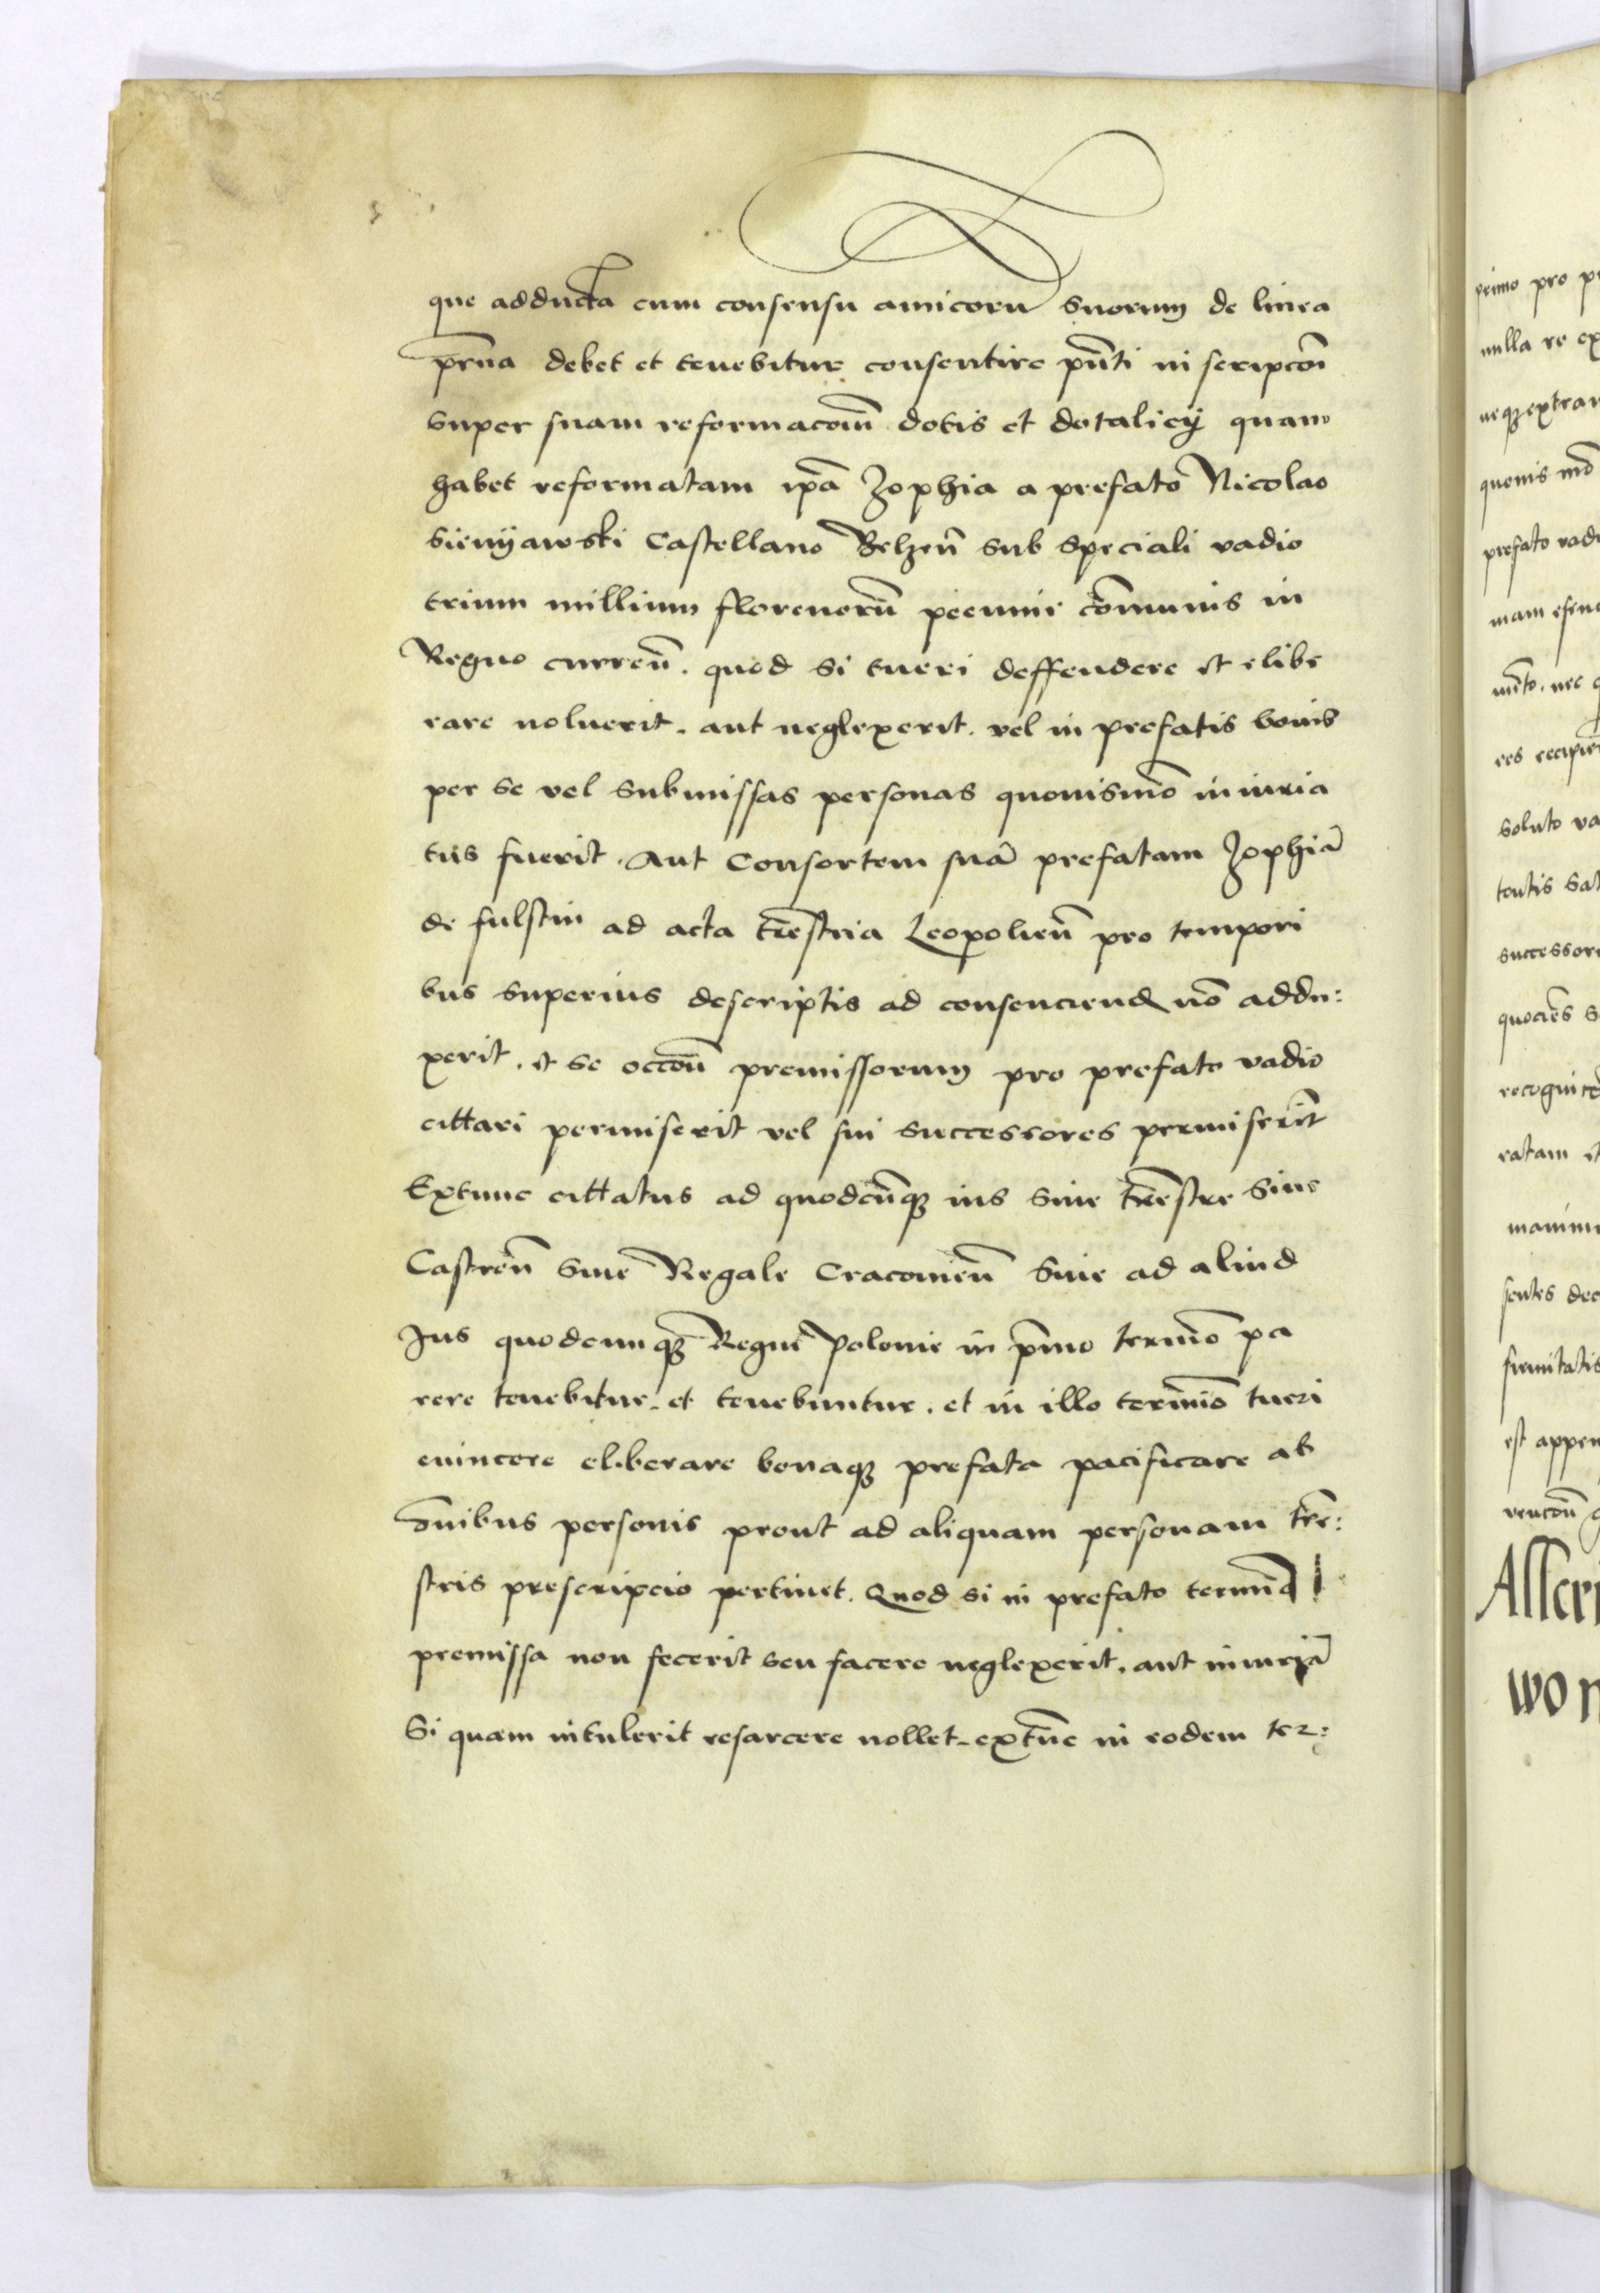 que adducta cum consensu amicorū suorum de linea
prn̄a debet et tenebitur consentire pn̄ti in scripcōi
super suam reformacōm̄ dotis et dotalicÿ quam
habet reformatam ip̄a Zophia a prefato Nicolao
Sienÿawski Castellano Belzen̄ sub speciali vadio
trium millium florenorū pecunie cōmunis in
Regno curren̄. quod si tueri deffendere et elibe
rare noluerit. aut neglexerit. vel in prefatis bonis
per se vel submissas personas quouismō iniuria
tus fuerit. Aut Consortem suā prefatam Zophiā
de fulstin ad acta tr̄estria Leopolien̄ pro tempori
bus superius descriptis ad consenciend nō addu:
xerit. et se occōn̄ premissorum pro prefato vadio
cittari permiserit vel sui successores permiserīt
Extunc cittatus ad quodcūq; ius siue tr̄estre siue
Castren̄ siue Regale Cracouien̄ siue ad aliud
Jus quodcumq; Regni Polonie in pr̄mo termīo pa
rere tenebitur. et tenebuntur. et in illo termīno tueri
euincere eliberare bonaq; prefata pacificare ab
ōnibus personis prout ad aliquam personam tr̄e:
stris prescripcio pertinet. Quod si in prefato termīo
premissa non fecerit seu facere neglexerit. aut iniuriā
Si quam intulerit resarcere nollet. extūc in eodem ter:
primo pro
nulla re
neq; extra
quouis mō
prefato vad
mam
nec
res
soluto va
tentis sat
successor
quociēs s
recognic
ratam et
maximu
sentes dec
firmitatis
est appen
Alleri
won